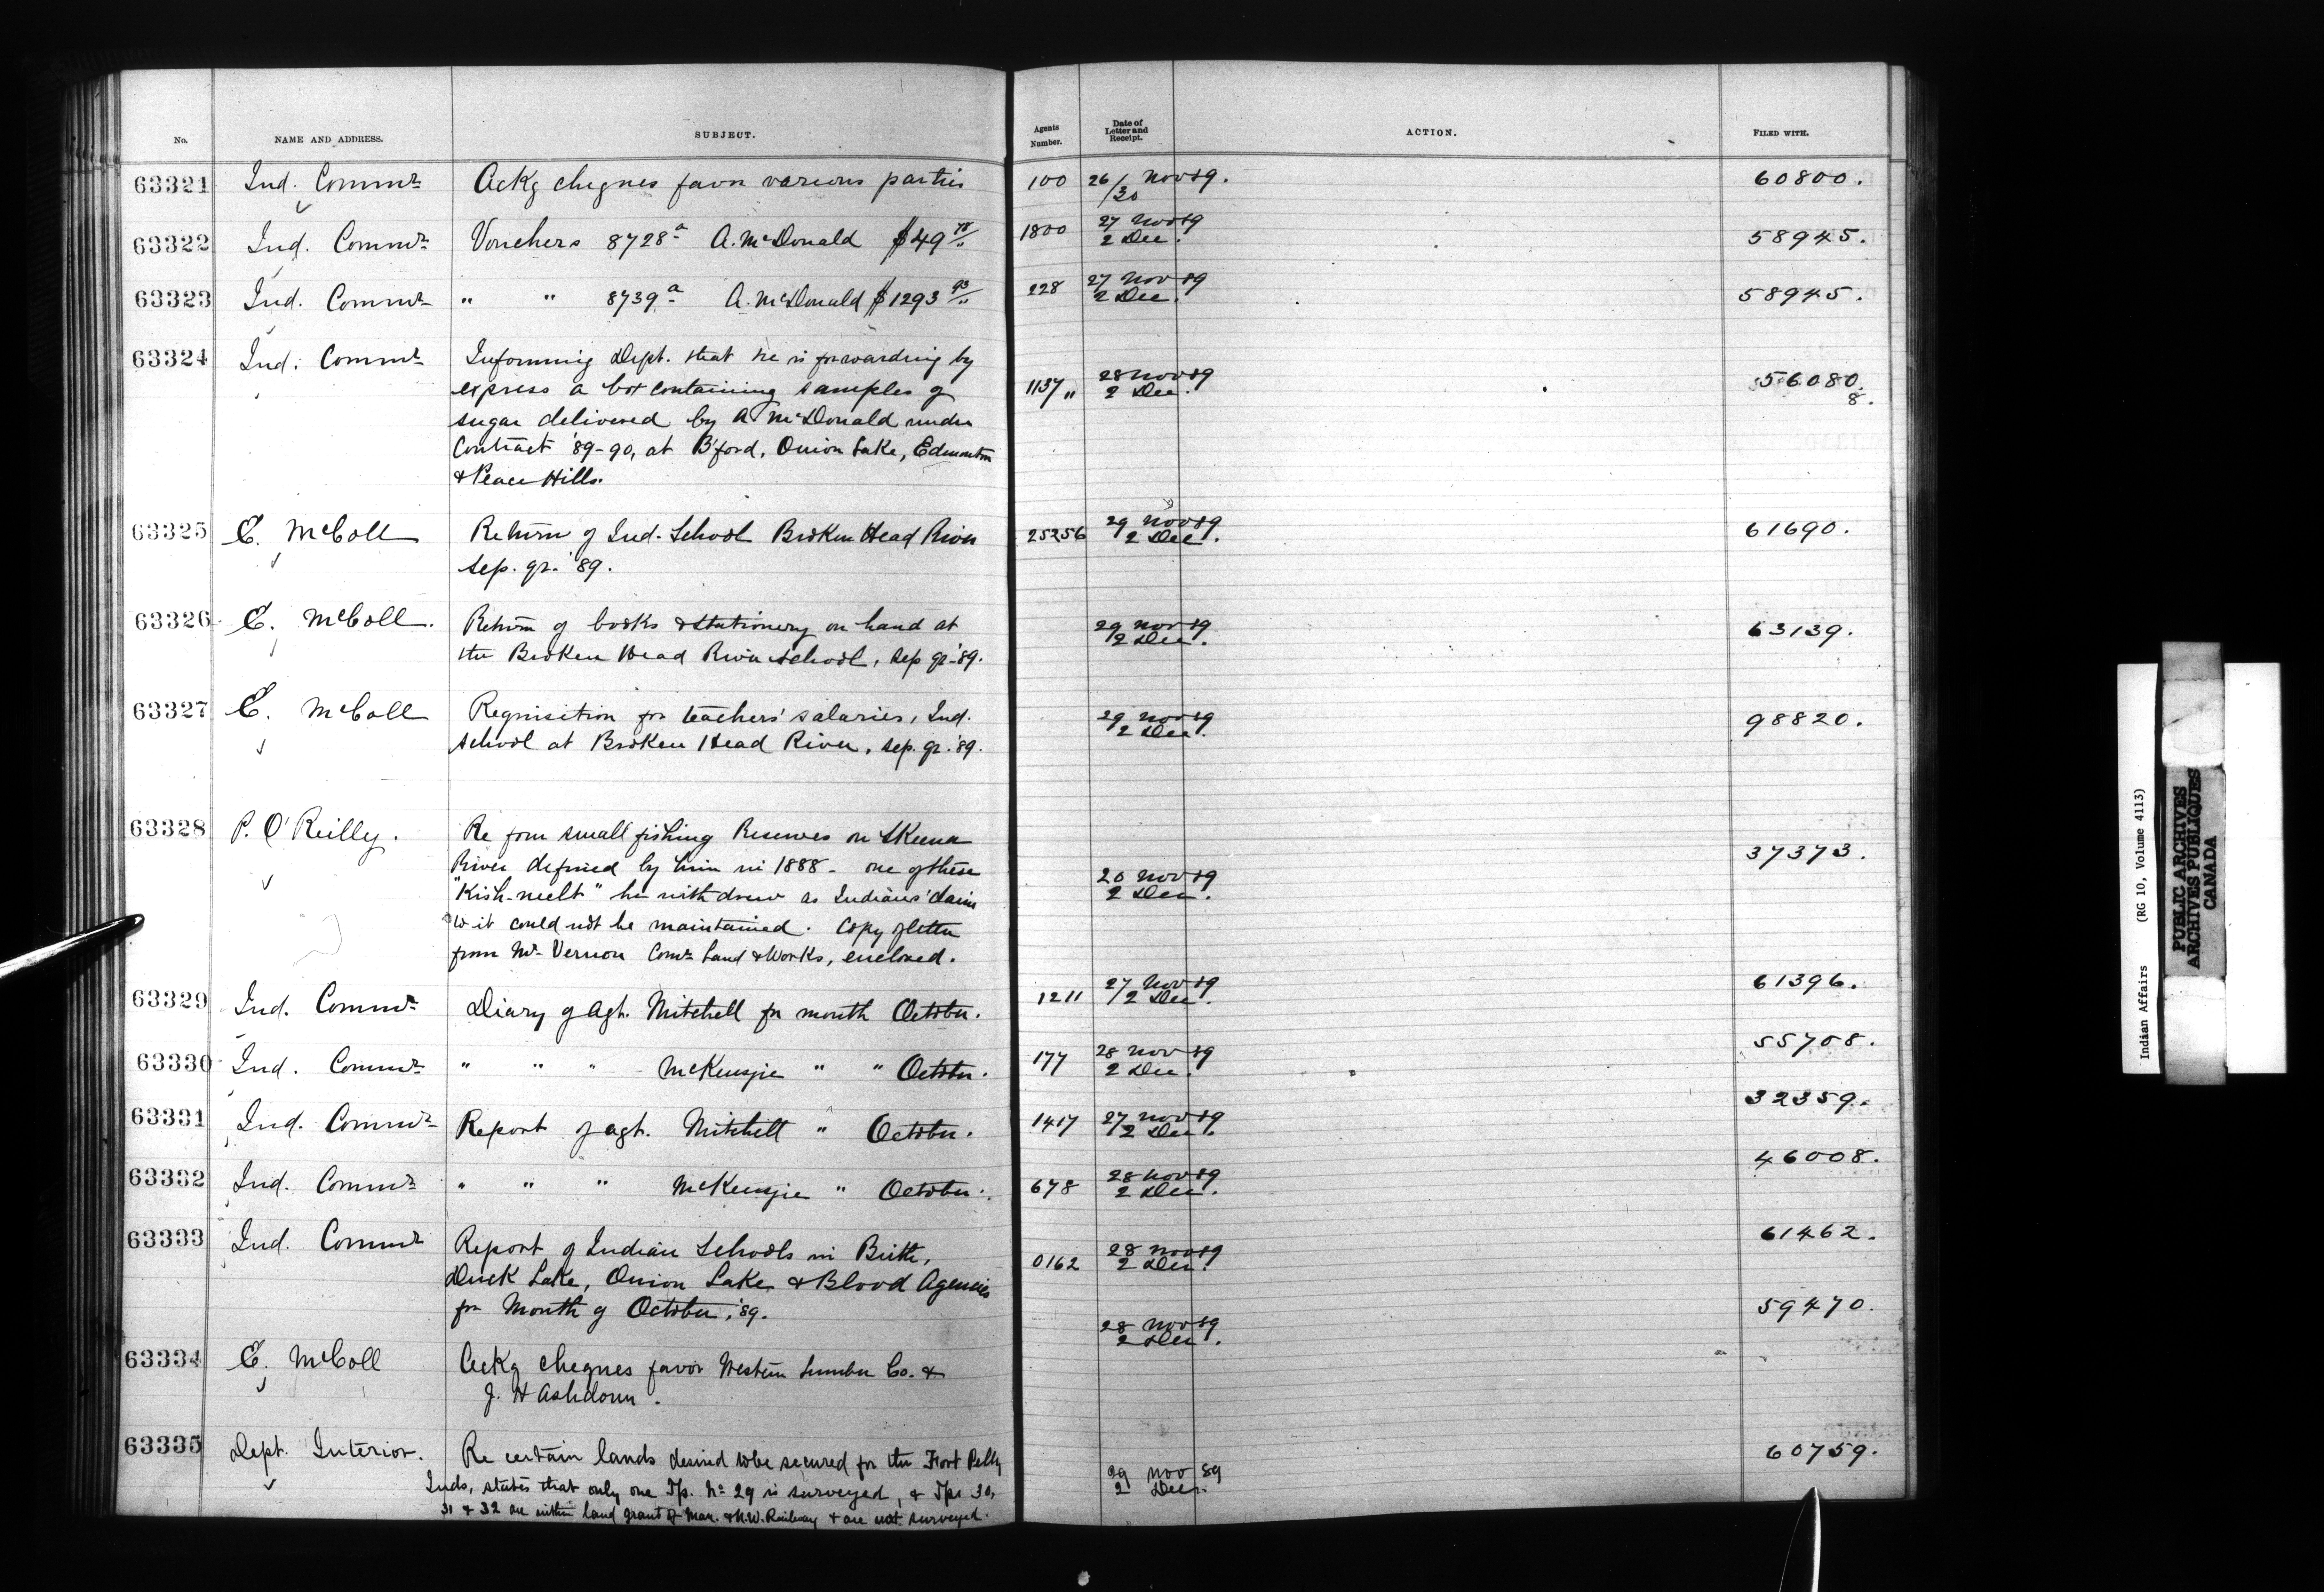 No. NAME AND ADDRESS. SUBJECT. Agents Number. Date of Letter and Receipt. ACTION. FILED WITH.
63321 Ind. Commr Ackg cheques favor various parties 100 26/30 Nov 89. 60800.
63322 Ind. Commr Vouchers 8728a A. McDonald $49 1800 27 Nov 89 58945.
2 Dec.
63323 Ind. Commr " " 8739a A. McDonald $1293 93 228 27 Nov 89 58945.
2 Dec.
63324 Ind. Commr Informing Dept. that he is forwarding by
express a box containing samples of 1137 " 28 Nov 89 56080.
2 Dec. 8.
sugar delivered by A McDonald under
Contract '89-90, at B'ford, Onion Lake, Edmonton
& Peace Hills.
63325 E. McColl Return of Ind. School Broken Head River 25256 29 Nov 89 61690.
Sep. qr. '89. 2 Dec.
63326 E. McColl. Return of books & stationery on hand at 29 Nov 89 63139.
the Broken Head River School, Sep qr. '89. 2 Dec.
63327 E. McColl Requisition for teachers' salaries, Ind. 29 Nov 89 98820.
School at Broken Head River, Sep. qr. '89. 2 Dec.
63328 P. O'Reilly. Re four small fishing Reserves on Skeena
River defined by him in 1888 - one of these 37373.
"Kish-neelt" he withdrew as Indians' claim 20 Nov 89
to it could not be maintained. Copy of letter 2 Dec.
from Mr Vernon Comr Land & Works, enclosed.
63329 Ind. Commr Diary of Agt. Mitchell for month October. 1211 27 Nov 89 61396.
2 Dec.
63330 Ind. Commr " " " McKenzie " " October. 177 28 Nov 89 55708.
2 Dec.
63331 Ind. Commr Report of agt. Mitchell " October. 1417 27 Nov 89 32359.
2 Dec.
63332 Ind. Commr " " " McKenzie " October. 678 28 Nov 89 46008.
2 Dec.
63333 Ind. Commr Report of Indian Schools in Birtle, 0162 28 Nov 89 61462.
Duck Lake, Onion Lake & Blood Agencies 2 Dec.
for Month of October, '89.
63334 E. McColl Ackg cheques favor Western Lumber Co. & 28 Nov 89 59470.
J. H Ashdown. 2 Dec.
63335 Dept. Interior. Re certain lands desired to be secured for the Fort Pelly 29 Nov 89 60759.
Inds, states that only one Tp. No 29 is surveyed, & Tps 30, 2 Dec.
31 & 32 are within land grant of Man. & N.W. Railway & are not surveyed.
Indian Affairs (RG 10, Volume 4113)
PUBLIC ARCHIVES
ARCHIVES PUBLIQUES
CANADA